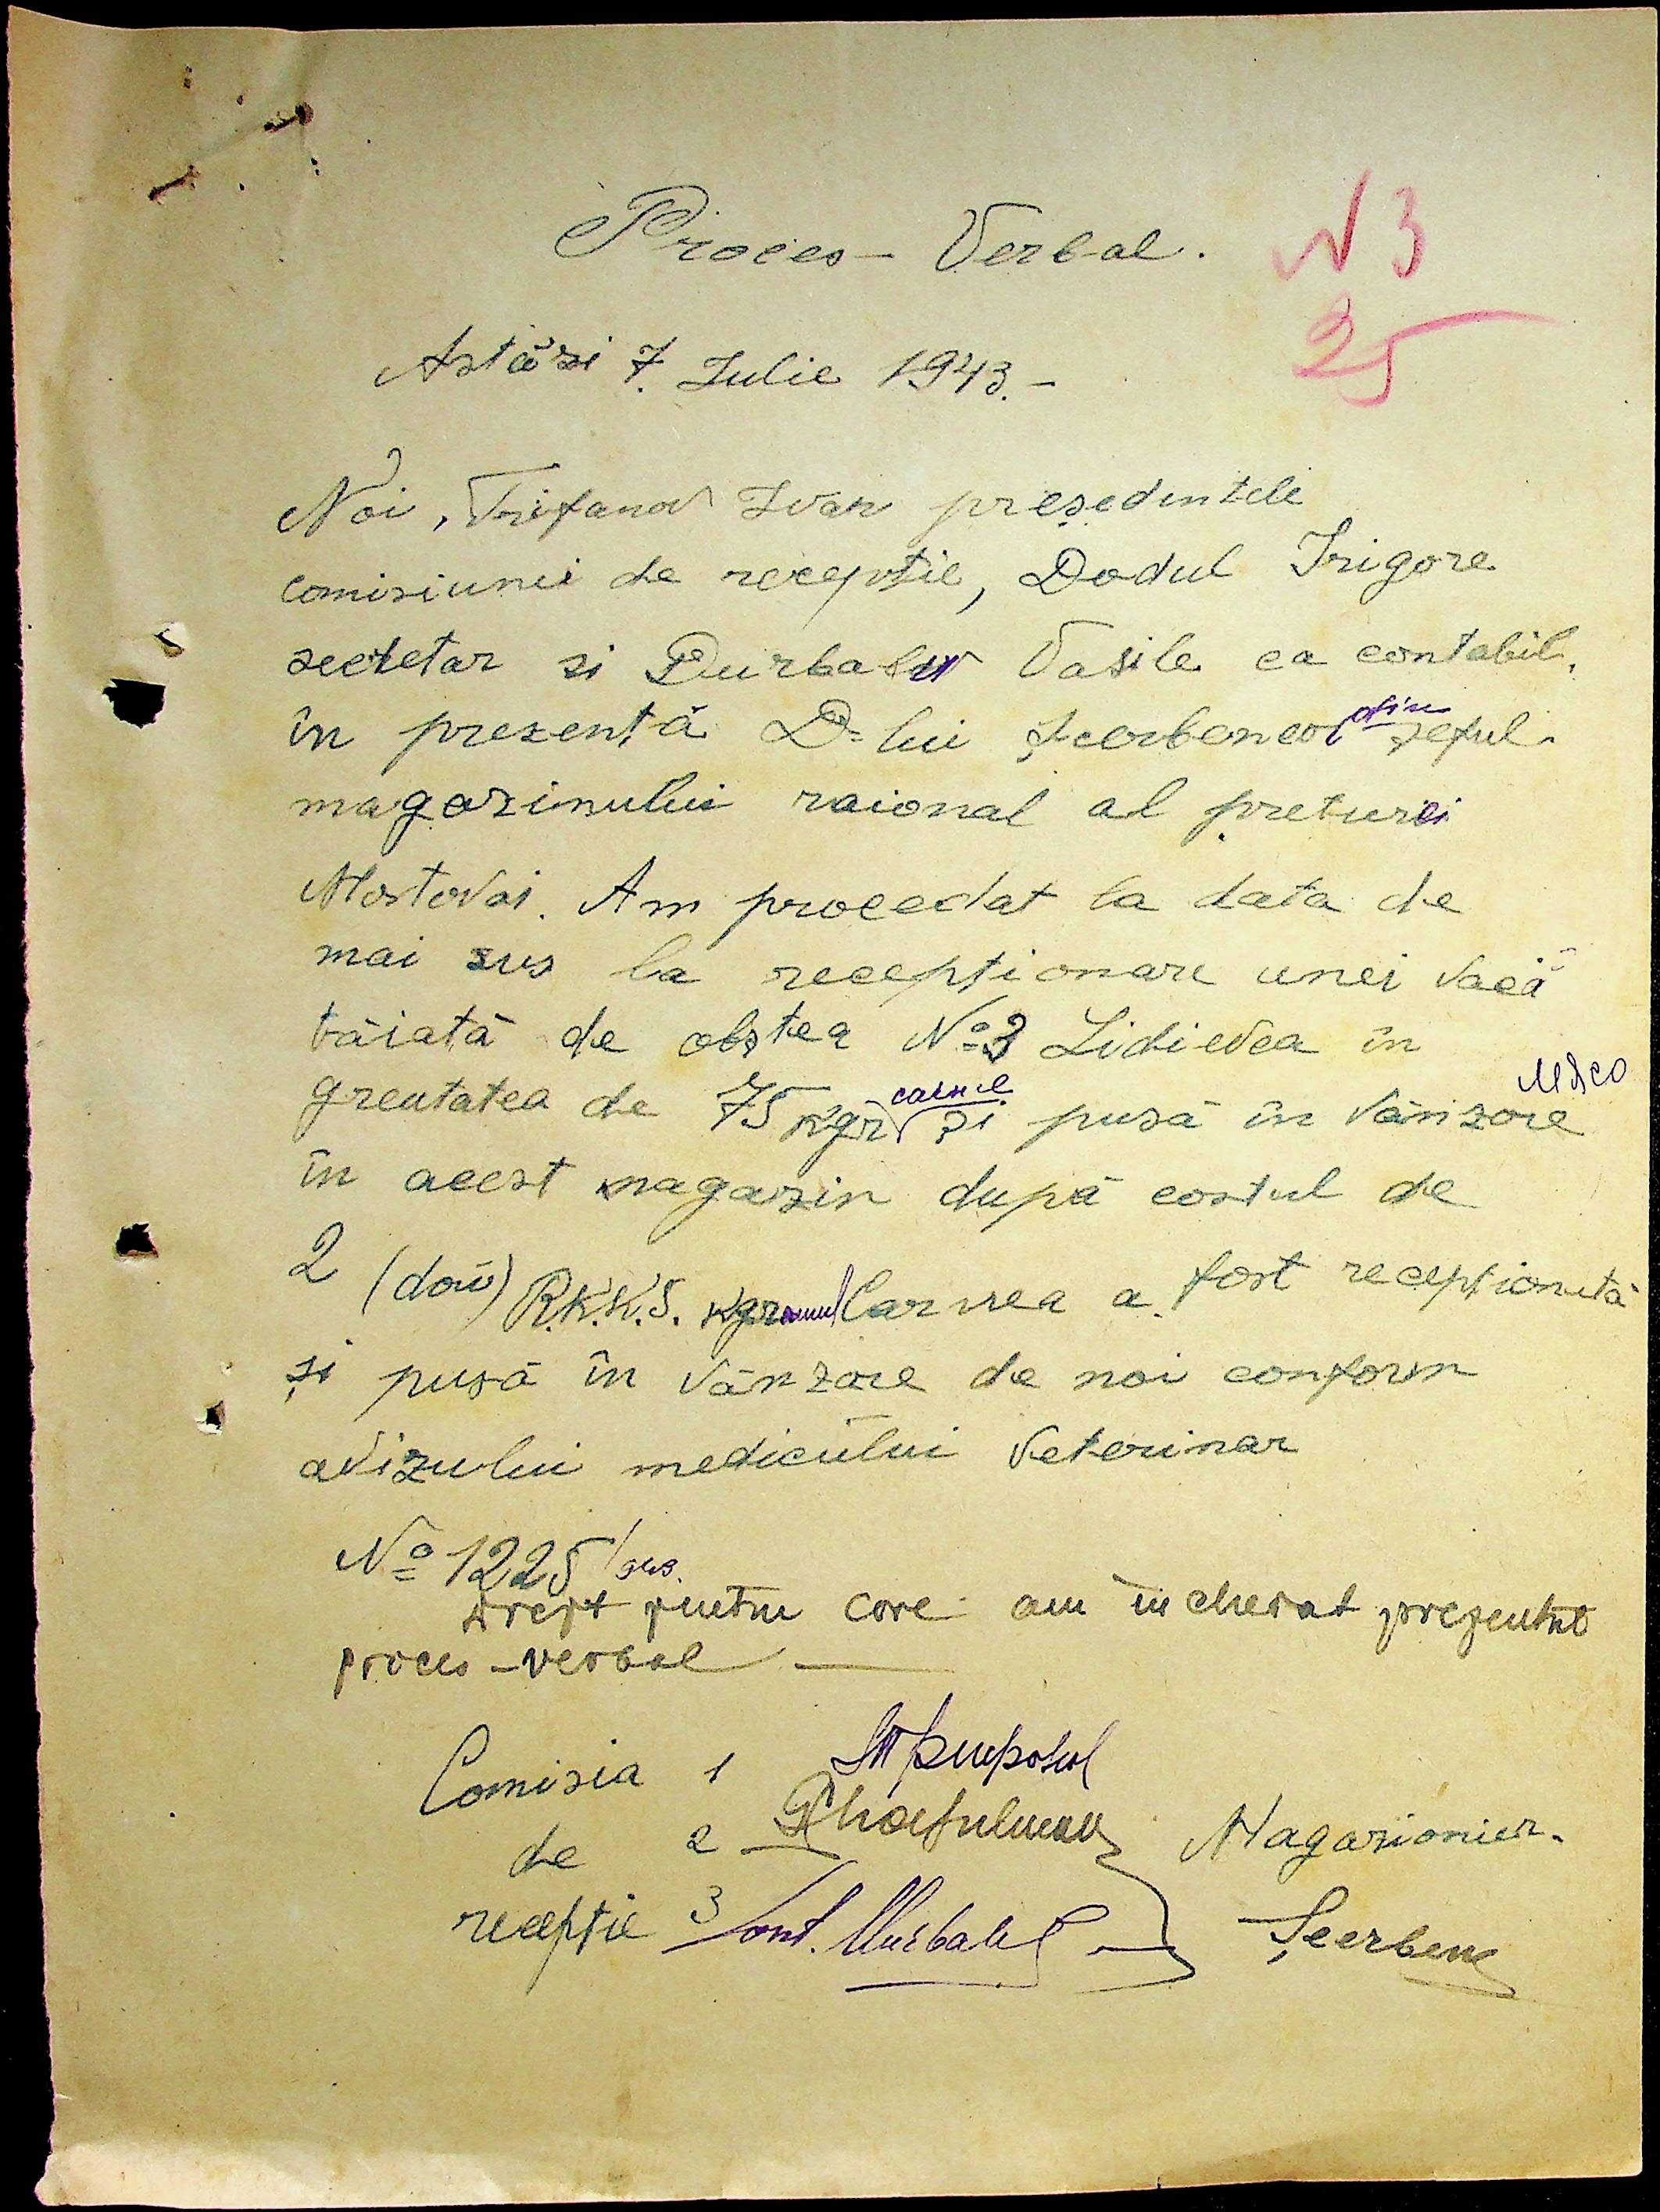 Proces - Verbal.
N 3
25
Astăzi 7. Iulie 1943. -
Noi, Trifanov Ivan președintele
comisiunei de recepție, Dodul Grigore
secretar si Durbalov Vasile ca contabil,
în prezență D-lui Șcerbenco din șeful
magazinului raional al preturei
Mostovoi. Am procedat la data de
mai sus la recepționare unei vacă
tăiată de obstea № 3 Lidievca în
мясо
greutatea de 75 kgr carne și pusă în vânzare
în acest magazin după costul de
2 (doŭ) R.K.K.S. kgramul Carnea a fost recepționată
și pusă în vânzare de noi conform
avizului medicului veterinar
№ 1225/943.
Drept pentru care am incheiat prezentul
proces - verbal
Comisia 1
de 2
recepție 3 Cont.
Magazioner.
Șcerbenc